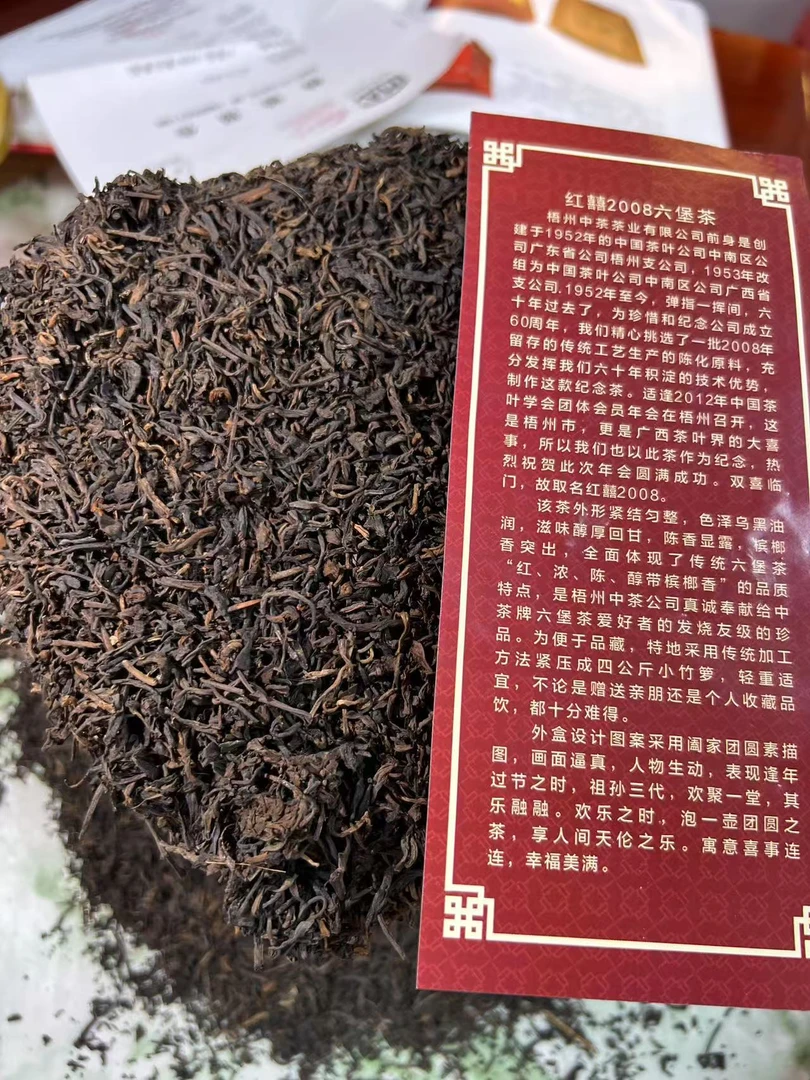 红囍2008六堡茶
梧州中茶茶业有限公司前身是创
建于1952年的中国茶叶公司中南区公
司广东省公司梧州支公司，1953年改
组为中国茶叶公司中南区公司广西省
支公司.1952年至今，弹指一挥间，六
十年过去了，为珍惜和纪念公司成立
60周年，我们精心挑选了一批2008年
留存的传统工艺生产的陈化原料，充
分发挥我们六十年积淀的技术优势，
制作这款纪念茶。适逢2012年中国茶
叶学会团体会员年会在梧州召开，这
是梧州市，更是广西茶叶界的大喜
事，所以我们也以此茶作为纪念，热
烈祝贺此次年会圆满成功。双喜临
门，故取名红囍2008。
该茶外形紧结匀整，色泽乌黑油
润，滋味醇厚回甘，陈香显露，槟榔
香突出，全面体现了传统六堡茶
“红、浓、陈、醇带槟榔香”的品质
特点，是梧州中茶公司真诚奉献给中
茶牌六堡茶爱好者的发烧友级的珍
品。为便于品藏，特地采用传统加工
方法紧压成四公斤小竹箩，轻重适
宜，不论是赠送亲朋还是个人收藏品
饮，都十分难得。
外盒设计图案采用阖家团圆素描
图，画面逼真，人物生动，表现逢年
过节之时，祖孙三代，欢聚一堂，其
乐融融。欢乐之时，泡一壶团圆之
茶，享人间天伦之乐。寓意喜事连
连，幸福美满。